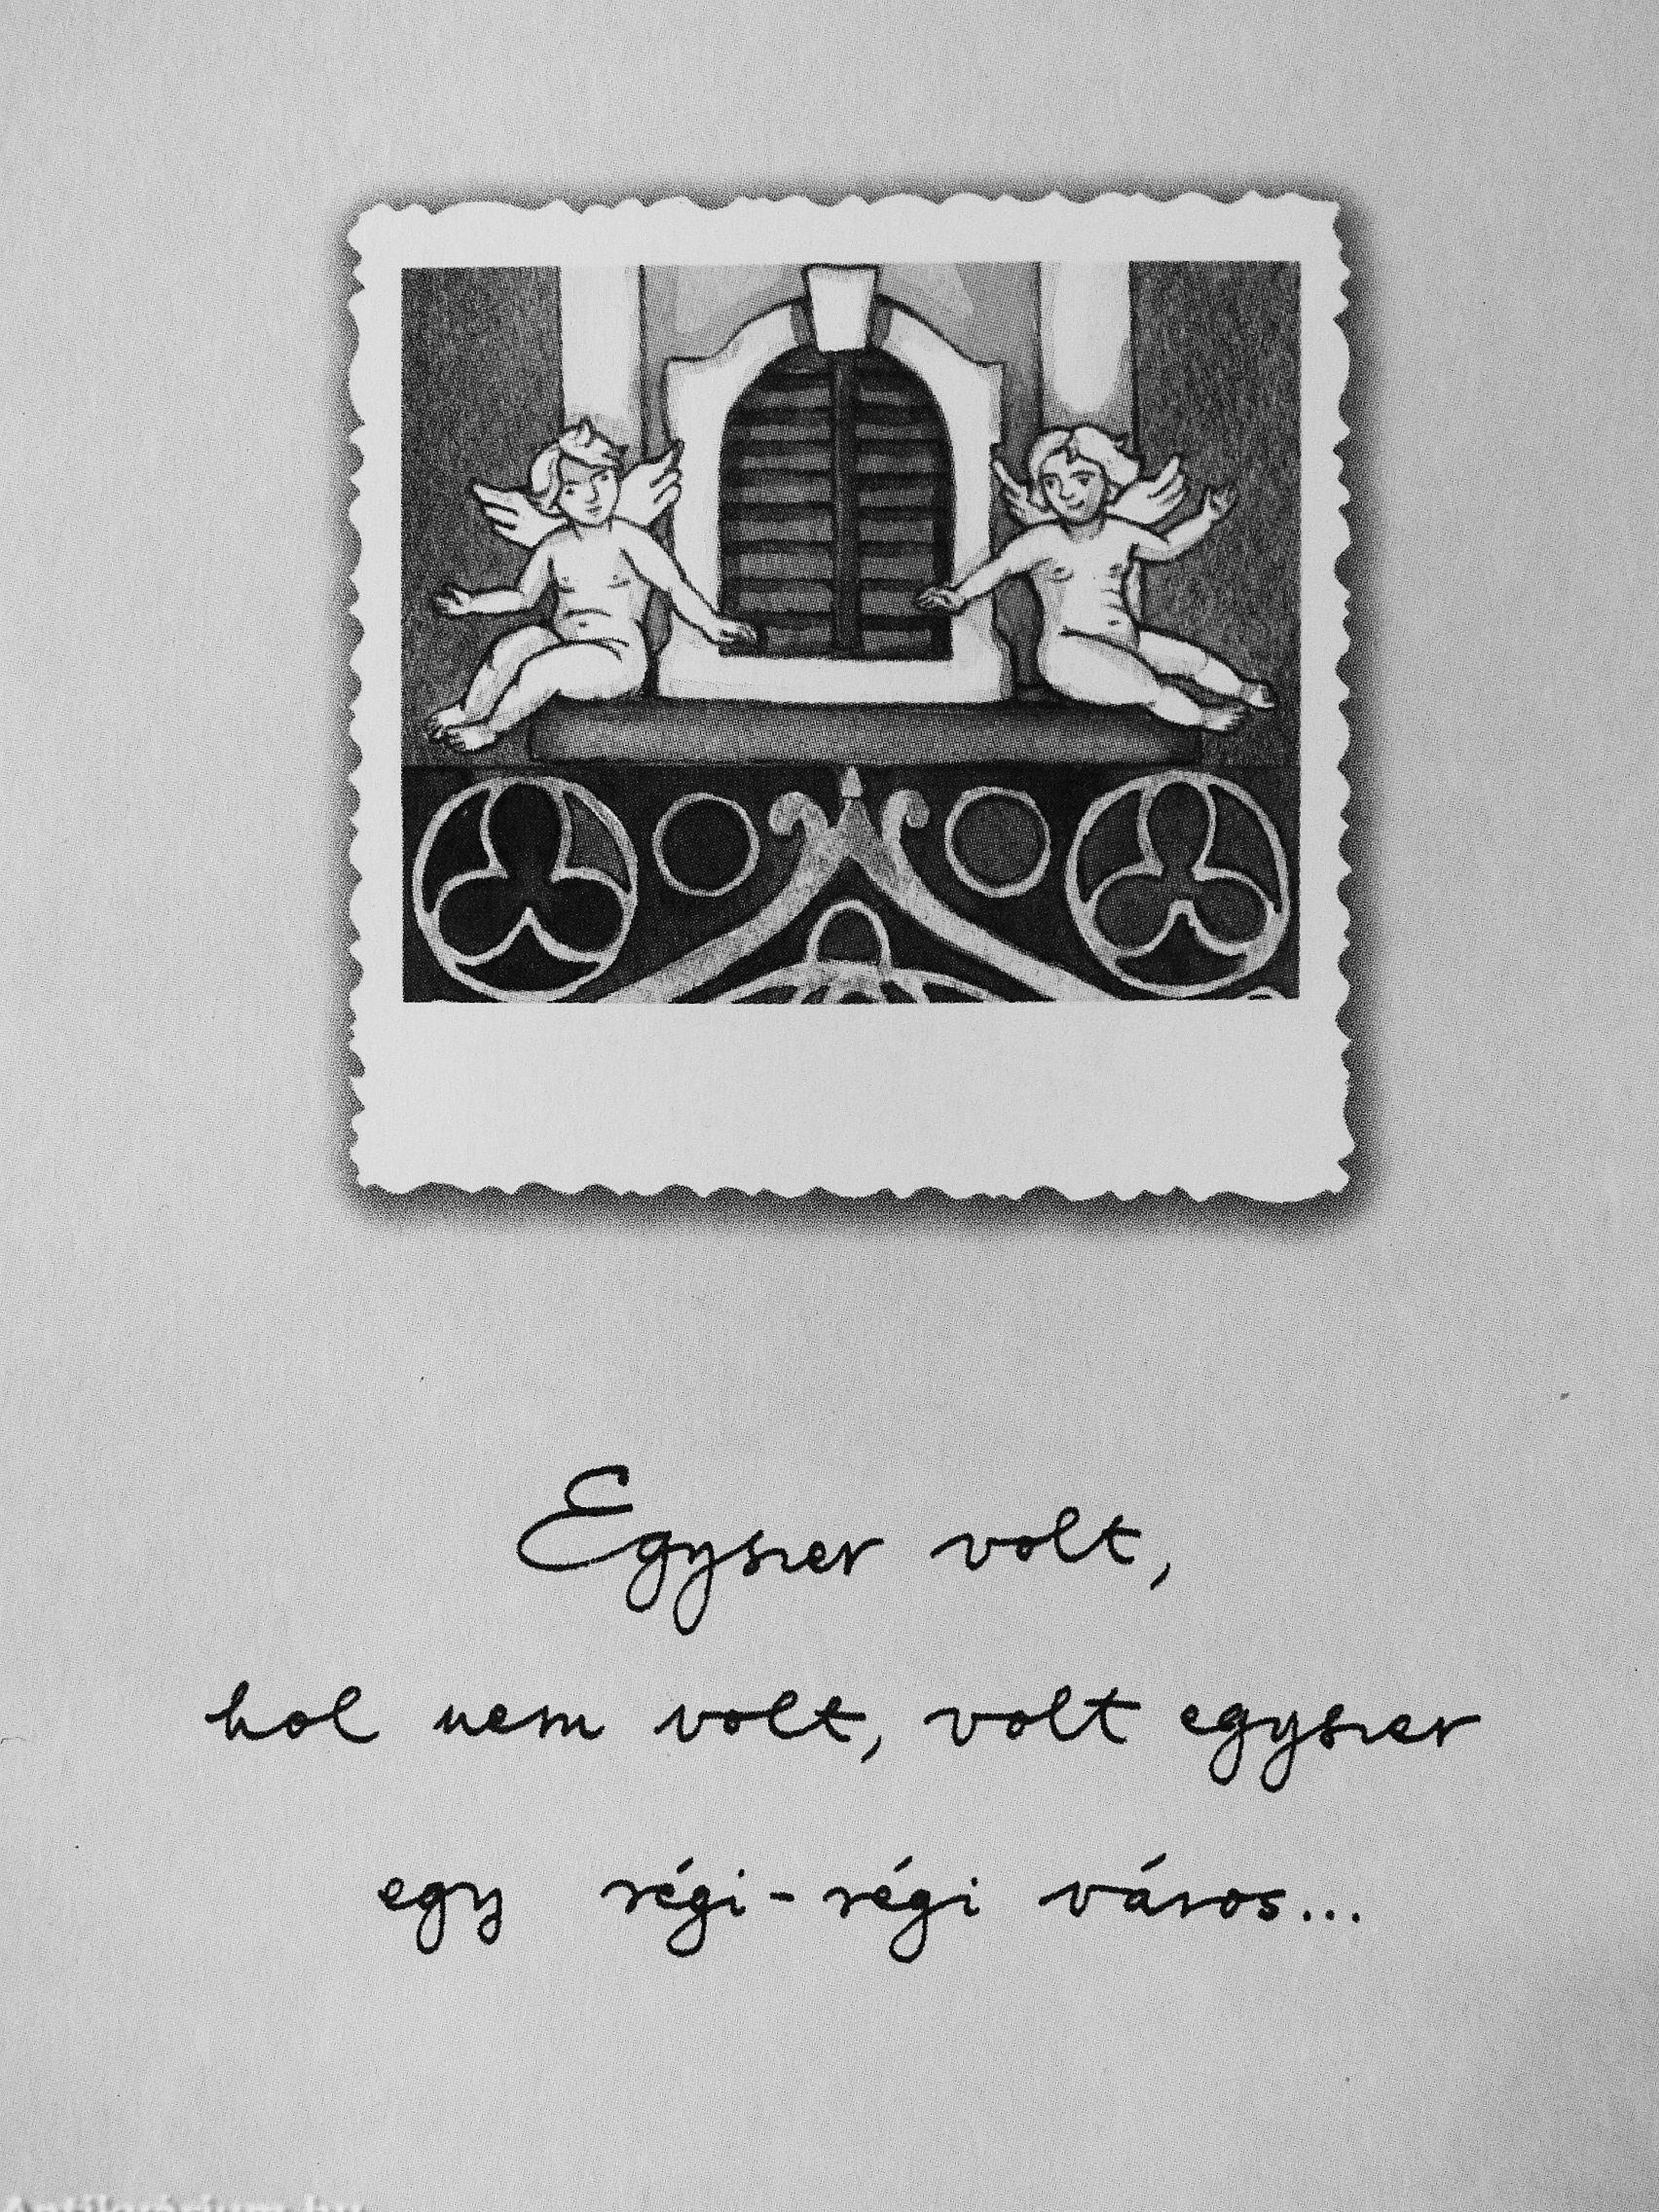 Egyszer volt,
hol nem volt, volt egyszer
egy régi-régi város...